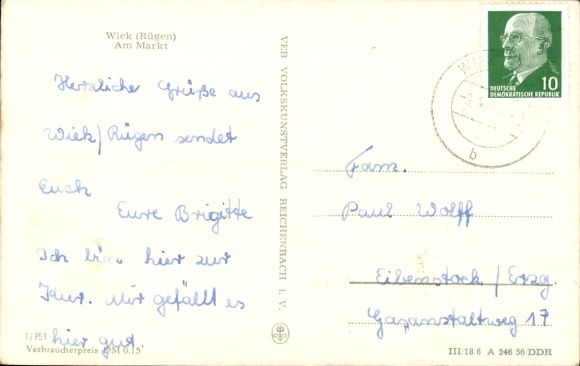 Wiek (Rügen)
Am Markt
Herzliche Grüße aus
Wiek/Rügen sendet
Euch
Eure Brigitte
Ich bin hier zur
Kur. Mir gefällt es
hier gut.
1/751
Verbraucherpreis DM 0.15
VEB VOLKSKUNSTVERLAG REICHENBACH i. V.
DEUTSCHE
DEMOKRATISCHE REPUBLIK
10
b
Fam.
Paul Wolff
Eibenstock / Erzg.
Gasanstaltweg 17
III/18 6 A 246 56 DDR